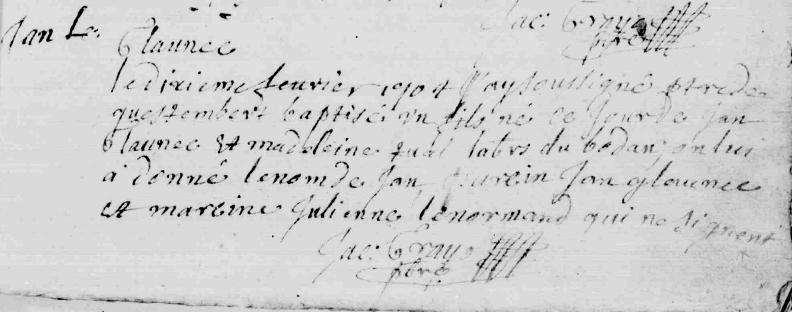 Jac: Eray
pbre
Jan Le
Glaunec
le dixieme feuvrier 1704 J'ay soussigné ptre de
questembert baptisé un fils né ce jour de Jan
Glaunec et madeleine tual labrs du bodan, on lui
a donné le nom de Jan, parein Jan glouenec
et mareine Julienne lenormand qui ne signent
Jac: Eray
pbre